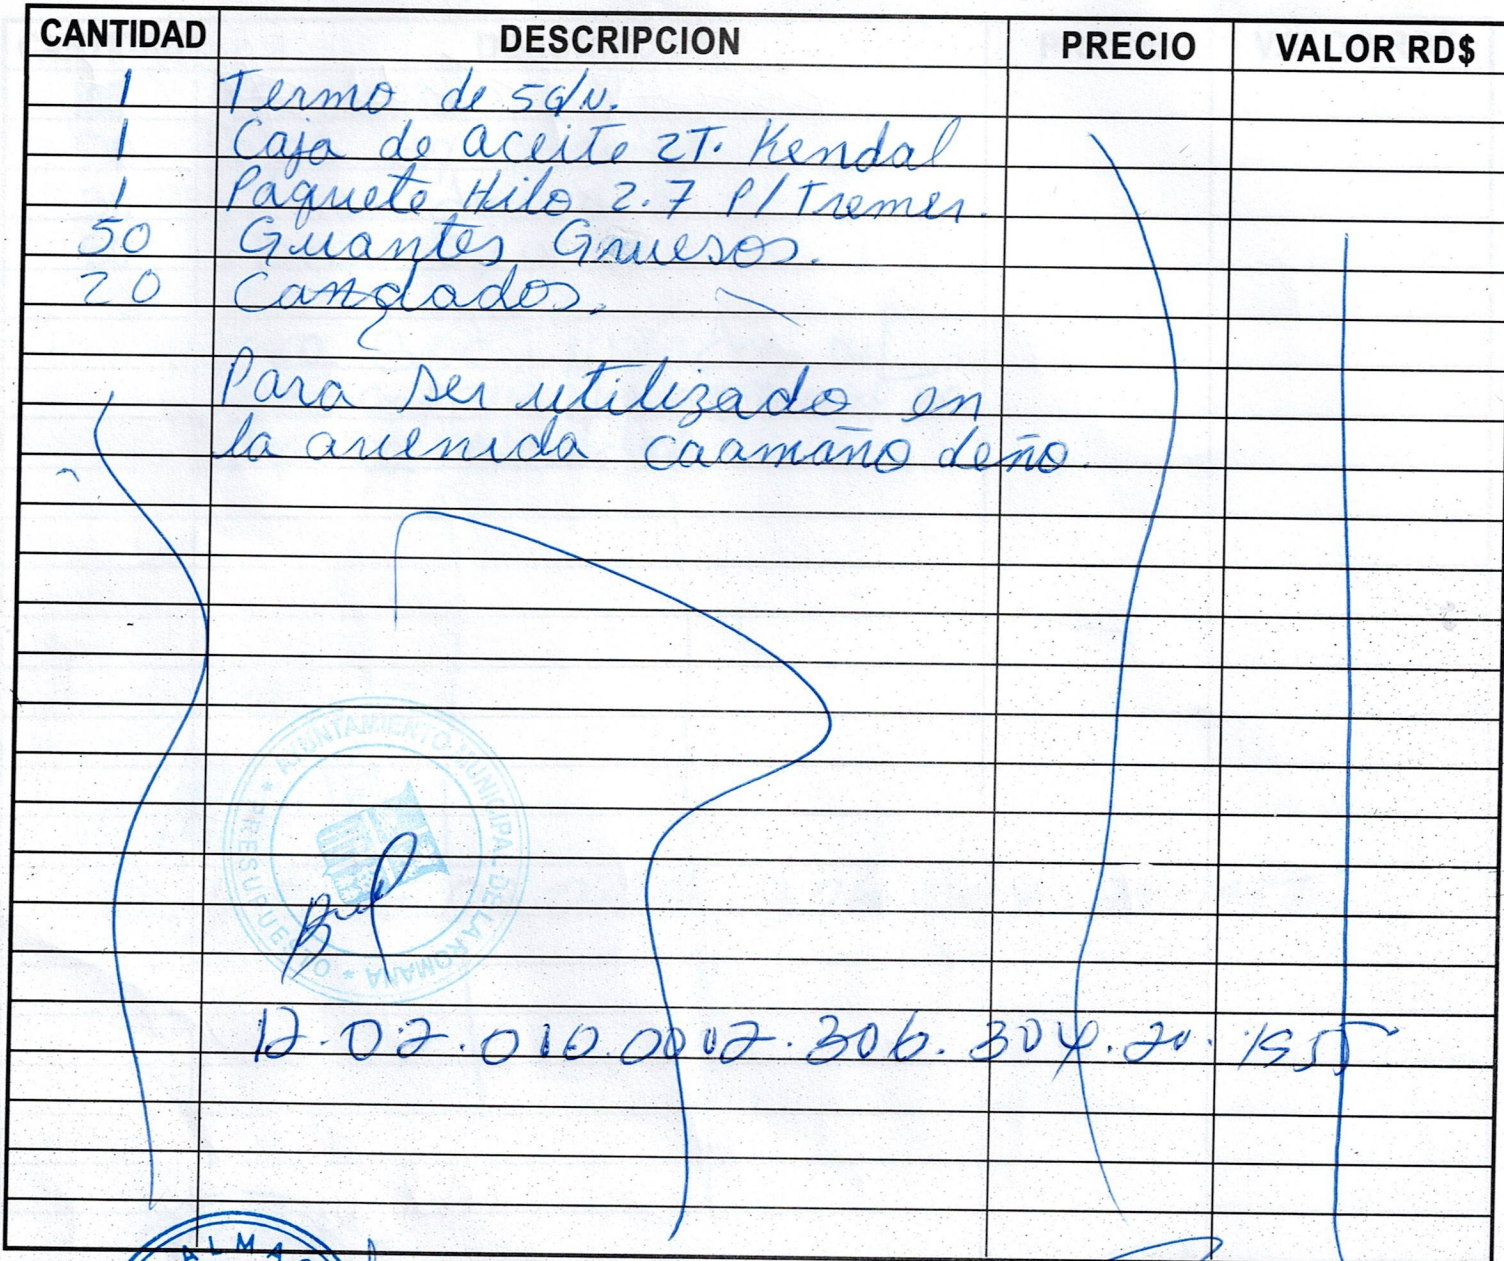 CANTIDAD DESCRIPCION PRECIO VALOR RD$
1 Termo de 5
1 Caja de aceite 2T. Kendal
1 Paquete Hilo 2.7 P/Tremer.
50 Guantes Gruesos.
20 Candados.
Para ser utilizado en
la avenida caamaño deño.
* AYUNTAMIENTO MUNICIPAL DE LA ROMANA * PRESUPUESTO
12.02.010.0002.306.304.20.
ALMA